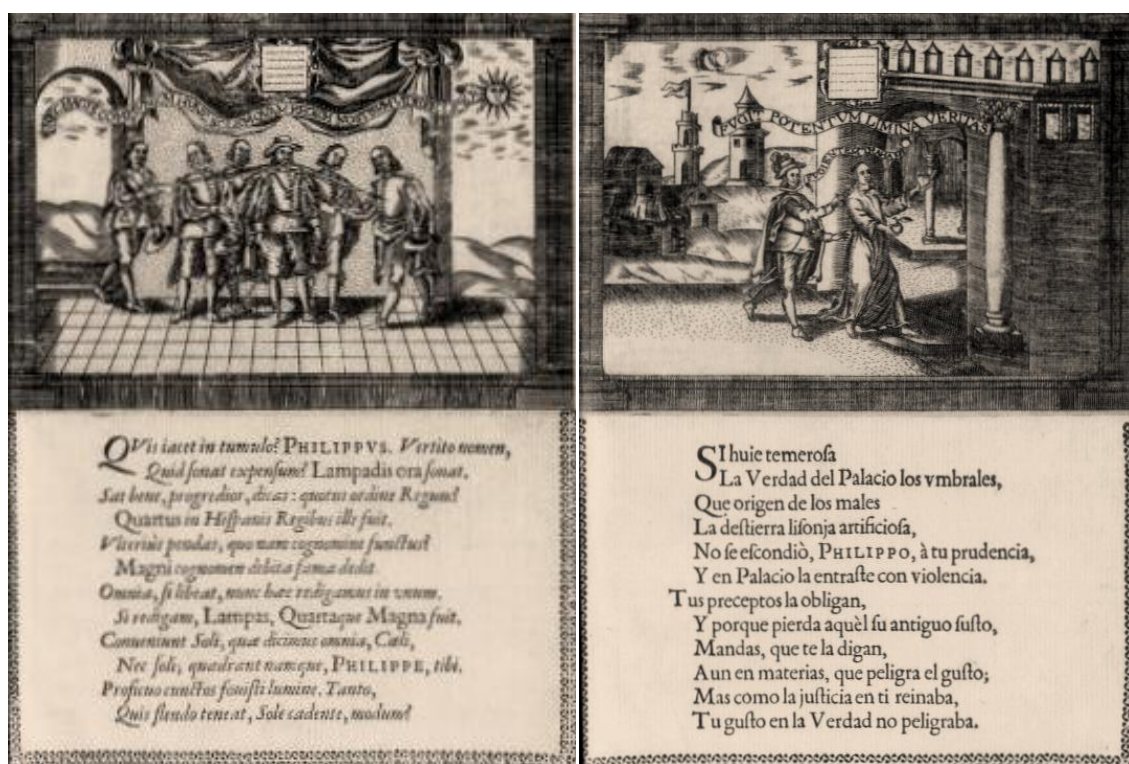 FVGIT POTENTVM LIMINA VERITAS
QVis iacet in tumulo? PHILIPPVS. Vertito nomen,
Quid sonat expensum? Lampadis ora sonat.
Sat bene, progredior, dicas: quotus ordine Regum?
Quartus in Hispanis Regibus ille fuit.
Vlterius pendas, quo nam cognomine functus?
Magni cognomen debita fama dedit.
Omnia, si libeat, nunc hæc redigamus in vnum.
Si redigam, Lampas, Quartaque Magna fuit.
Conueniunt Soli, quæ dicimus omnia, Cæli,
Nec soli, quadrant namque, PHILIPPE, tibi.
Proficuo cunctos fouisti lumine. Tanto,
Quis flendo teneat, Sole cadente, modum?
SI huie temerosa
La Verdad del Palacio los vmbrales,
Que origen de los males
La destierra lisonja artificiosa,
No se escondiò, PHILIPPO, à tu prudencia,
Y en Palacio la entraste con violencia.
Tus preceptos la obligan,
Y porque pierda aquèl su antiguo susto,
Mandas, que te la digan,
Aun en materias, que peligra el gusto;
Mas como la justicia en ti reinaba,
Tu gusto en la Verdad no peligraba.